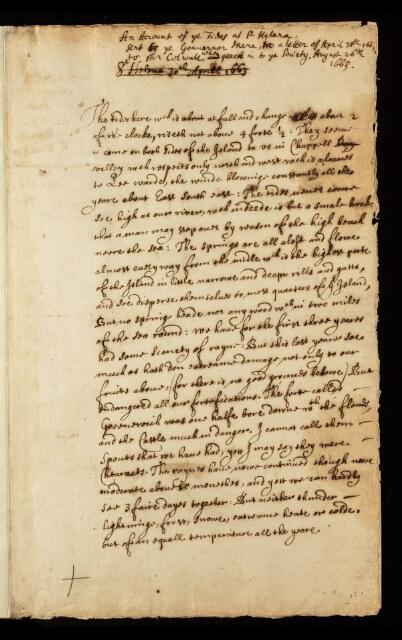 An Account of ye Tides at St Helena,
sent by ye Gouvernor there, in a letter of April 30th 1665
to Mr Colwall, and read in to ye Society, August 26th
1665.
St Helena 30th Aprill 1665
The tides here wch is about at full and change about 2
of the clocke, riseth not above 4 foote ½: They seeme
to come on both sides of the Island to us in Chappell
valley wch respects only north and west wch is alwaies
to Lee warde, the winde blowinge constantly all the
yeare about East South east: The tides never come
soe high at our river, wch indeede is but a small brooke
that a man may step over by reason of the high beach
neere the sea: The springs are all aloft and flowe
almost every way from the middle wch is the highest parte
of the Island in little narrowe and deepe rills and gutts,
and soe disperse themselves to most quarters of ye Island,
But no spring heade nor any wood wth in two miles
of the sea round: we have for the first three yeares
had some scarsety of rayne: But this last yeare soe
much as hath don extreame damage not only to our
fruits above, (for there is no good grounds belowe) But
Endangered all our fortifications. The forte called
Greenewich was one halfe bore downe wth the flouds,
and the Castle much in danger. I cannot call them
Spouts that we have had, yet I may say they were
Cataracts. The raynes have nowe continued though nowe
moderate above monethes, and yet we can hardly
see 3 faire dayes together: But neither thunder
lightninge, frost, snowe, extreame heate or colde.
but of an equall temperature all the yeare.